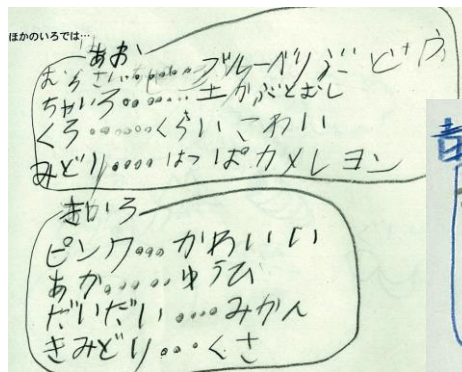 ほかのいろでは…
あお
むらさい……ブルーベリぶどう
ちゃいろ……土かぶとむし
くろ……くらいこわい
みどり……はっぱカメレヨン
きいろ
ピンク…かわいい
あか……ゆうひ
だいだい…みかん
きみどり…くさ
青